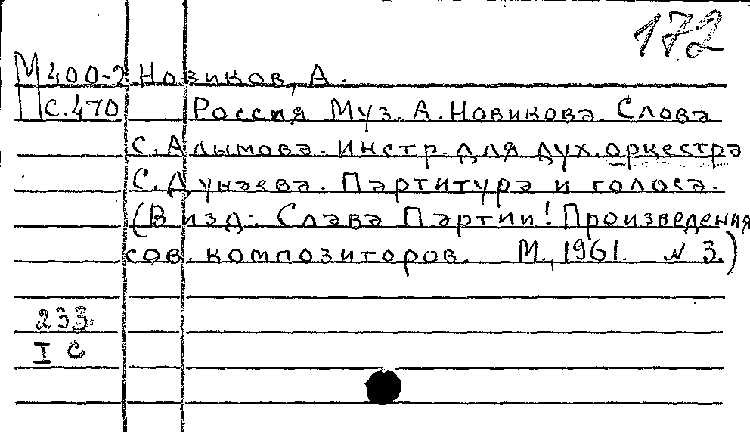 172
М400-2 Новиков, А.
С.470 Россия Муз. А. Новикова. Слова
С. Алымова. Инстр. для дух. оркестра
С. Дунаева. Партитура и голоса.
(В изд.: Слава Партии! Произведения
сов. композиторов. М., 1961. № 3.)
233
I С